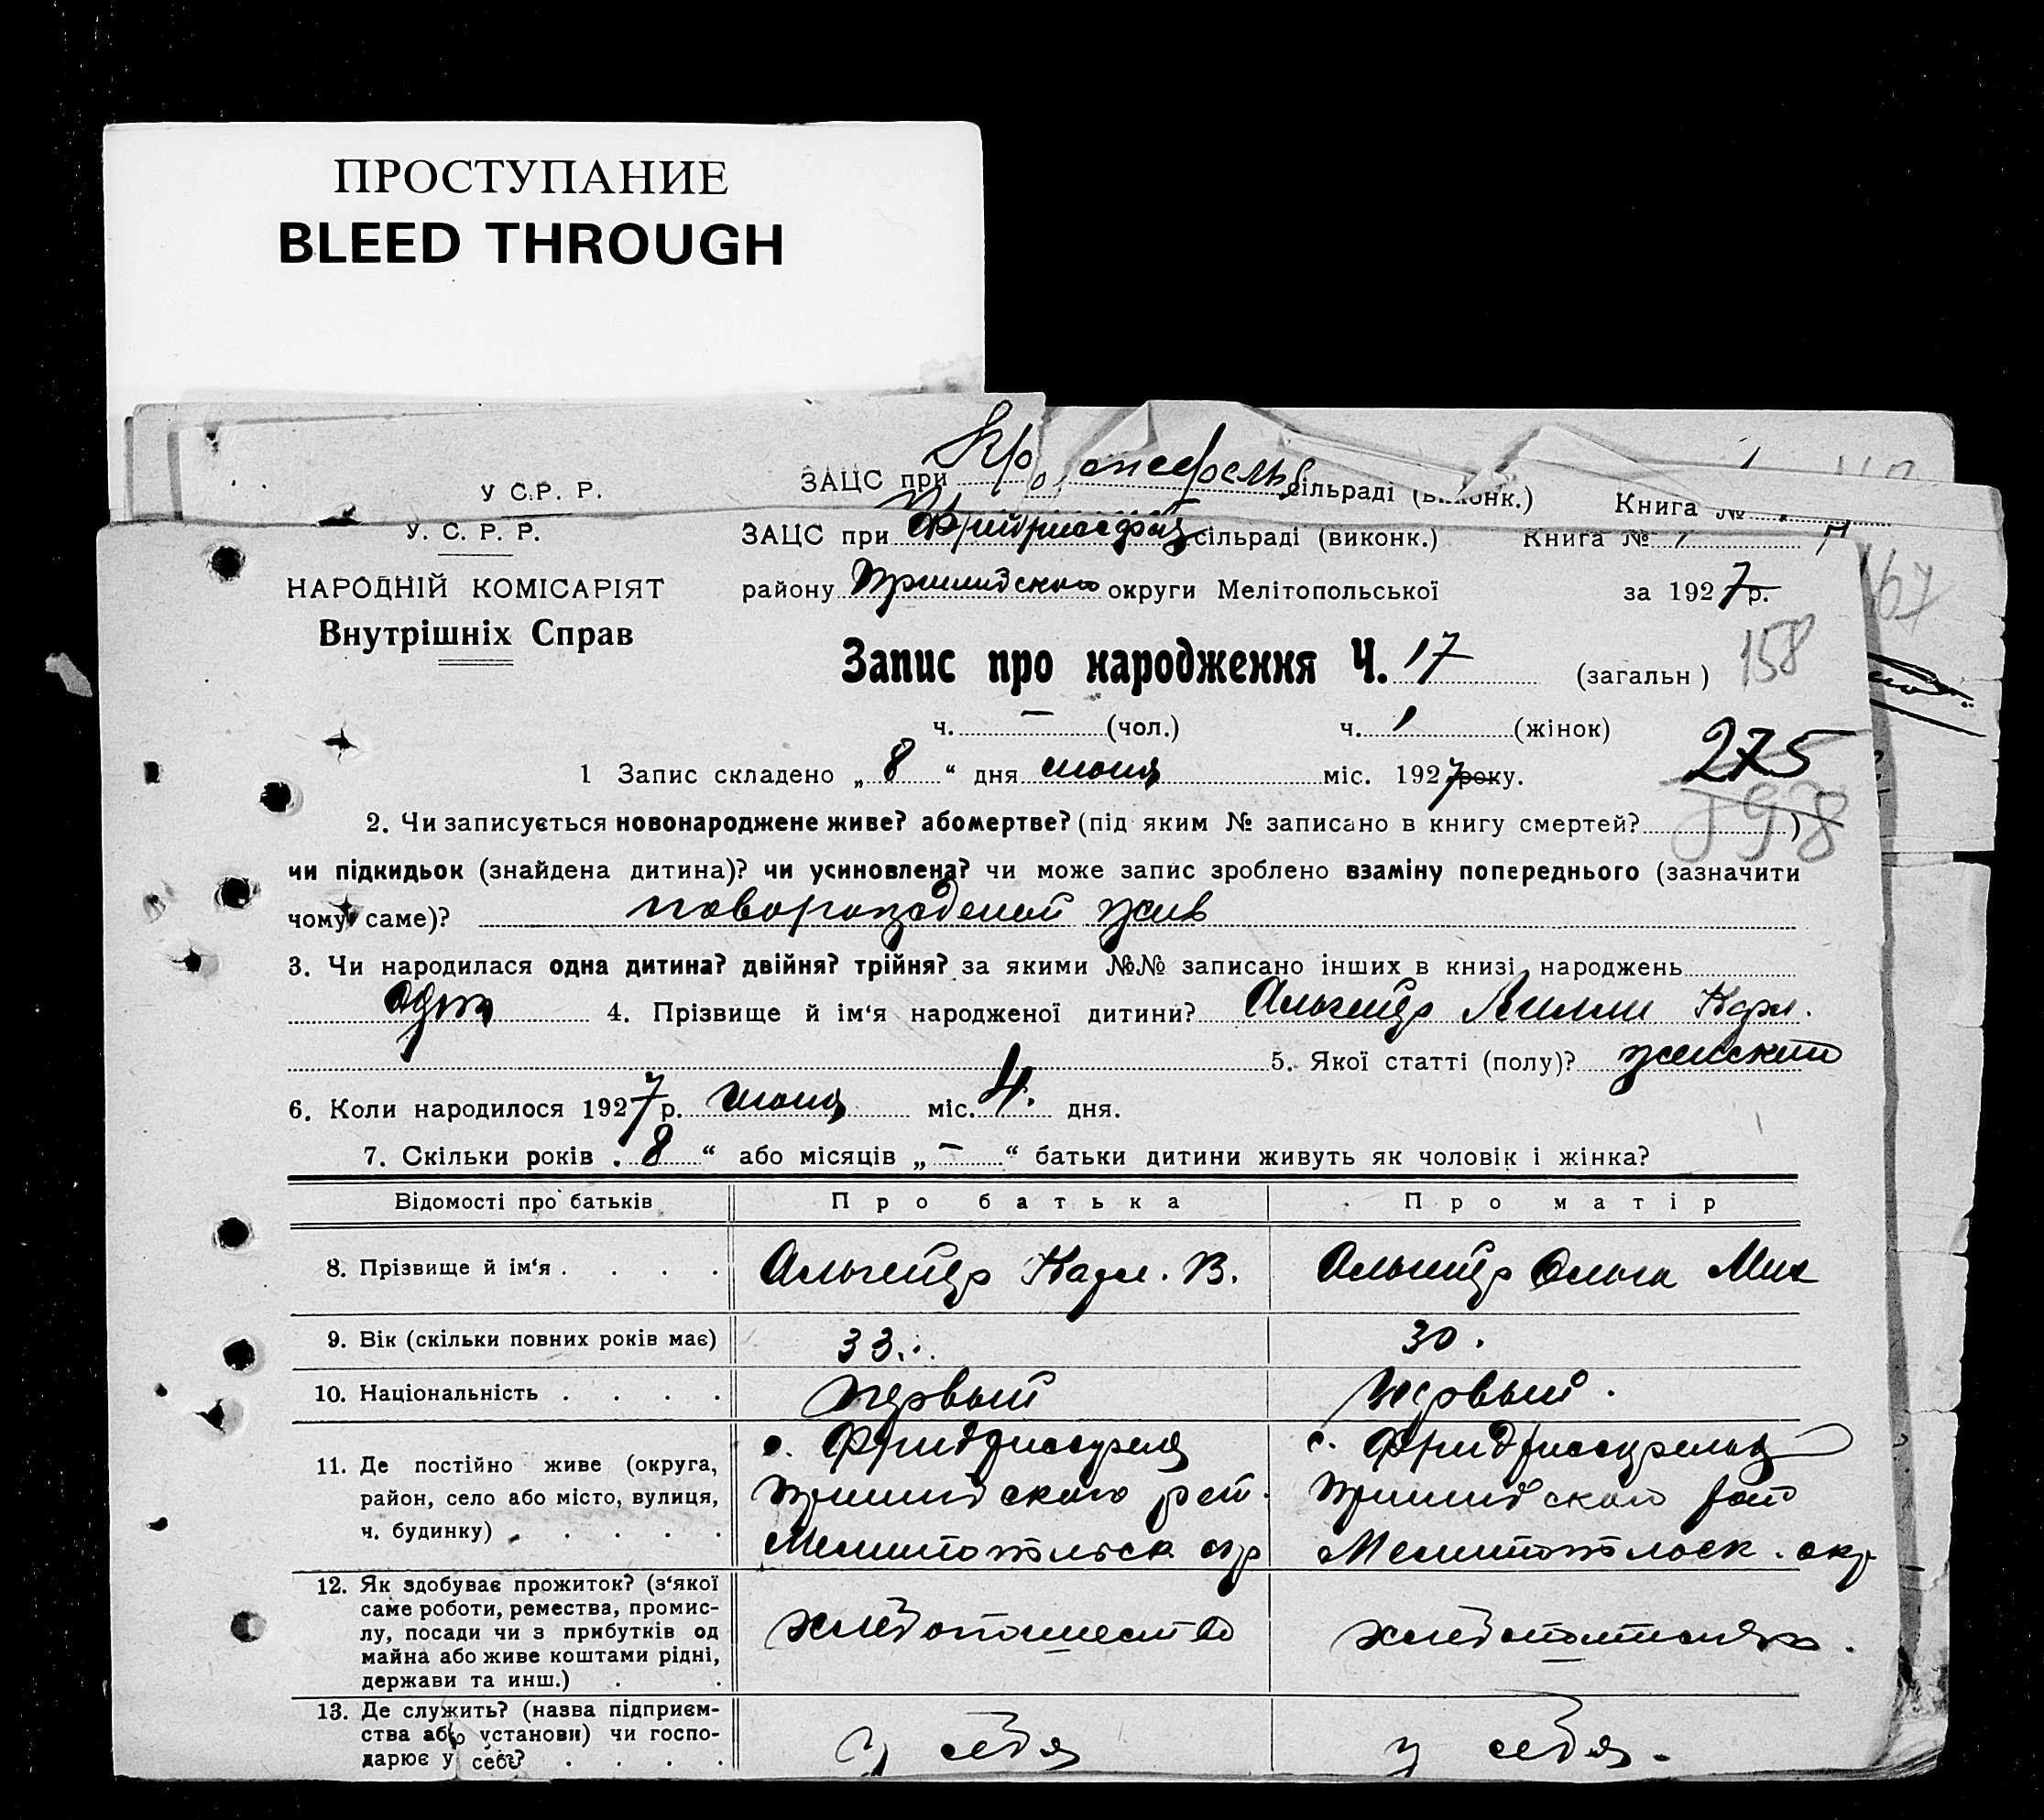 ПРОСТУПАНИЕ
BLEED THROUGH
У С.Р. Р.
ЗАЦС при сільраді (виконк.)
Книга №
У. С. Р. Р.
ЗАЦС при сільраді (виконк.)
Книга №
НАРОДНІЙ КОМІСАРІЯТ
району Пришибского округи Мелітопольської
за 1927 р.
67
Внутрішніх Справ
Запис про народження Ч. 17 (загальн)
158
ч. — (чол.) ч. 1 (жінок)
275
1 Запис складено „ 8 “ дня июня міс. 1927 року.
198
2. Чи записується новонароджене живе? або мертве? (під яким № записано в книгу смертей? )
чи підкидьок (знайдена дитина)? чи усиновлена? чи може запис зроблено взаміну попереднього (зазначити
чому саме)? новорожденой жив
3. Чи народилася одна дитина? двійня? трійня? за якими №№ записано інших в книзі народжень
4. Прізвище й ім‘я народженої дитини? Альгейер Лилли Карл.
5. Якої статті (полу)? женский
6. Коли народилося 1927 р. июня міс. 4. дня.
7. Скільки років „ 8 “ або місяців „ — “ батьки дитини живуть як чоловік і жінка?
Відомості про батьків
Про батька
Про матір
8. Прізвище й ім‘я . . . .
Альгейер Карл. В.
Альгейер Ольга Мих
9. Вік (скільки повних років має)
33.
30.
10. Національність . . . .
первый
первый.
11. Де постійно живе (округа,
район, село або місто, вулиця,
ч. будинку) . . . . .
с.
Пришибского рай.
Мелитопольск окр
с.
Пришибского рай
Мелитопольск. окр
12. Як здобуває прожиток? (з‘якої
саме роботи, ремества, промис-
лу, посади чи з прибутків од
майна або живе коштами рідні,
держави та инш.) . .
хлебопашество
13. Де служить? (назва підприєм-
ства або установи) чи госпо-
дарює у себе? . . . .
у себя
у себя.